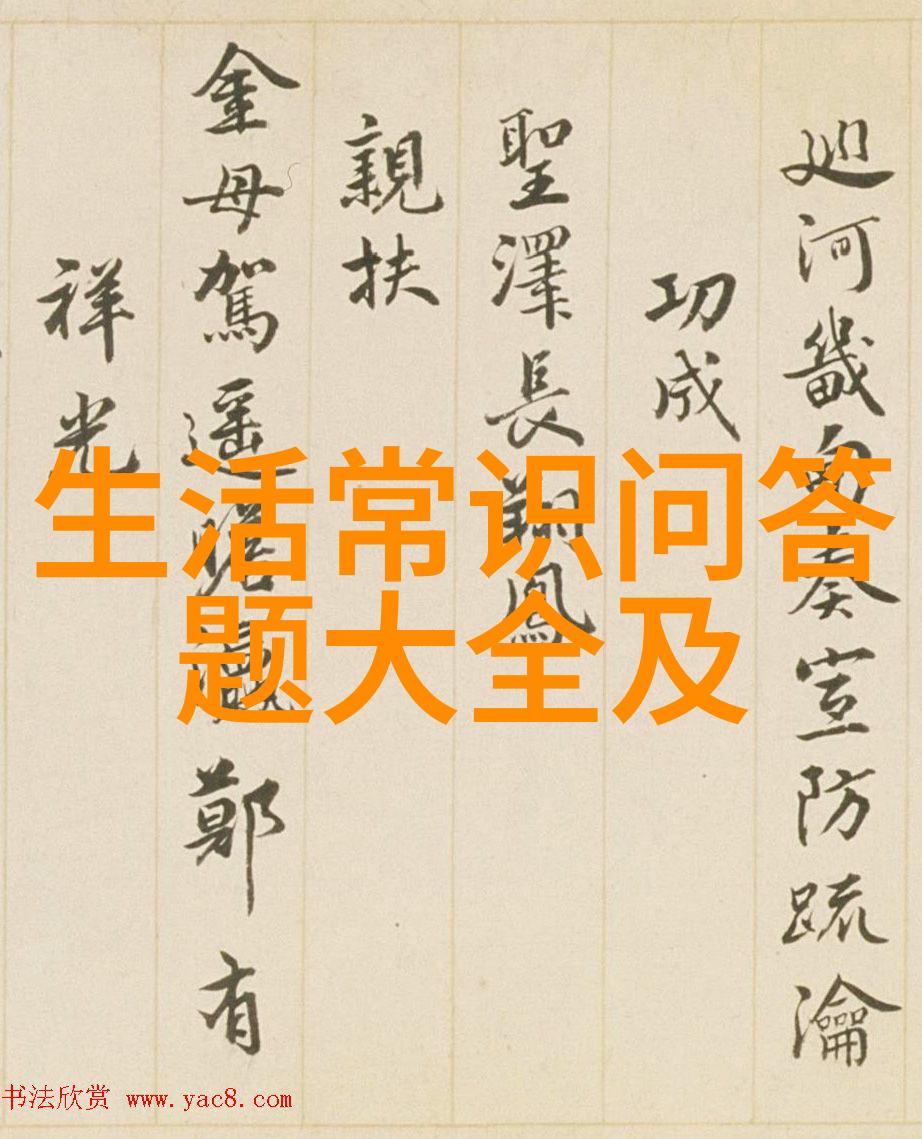 廵河畿甸奏宣防疏瀹
功成
聖澤長翔鳳
親扶
金母駕遥瞻鄭有
祥光
生活常识问答
题大全及
书法欣赏 www.yac8.com